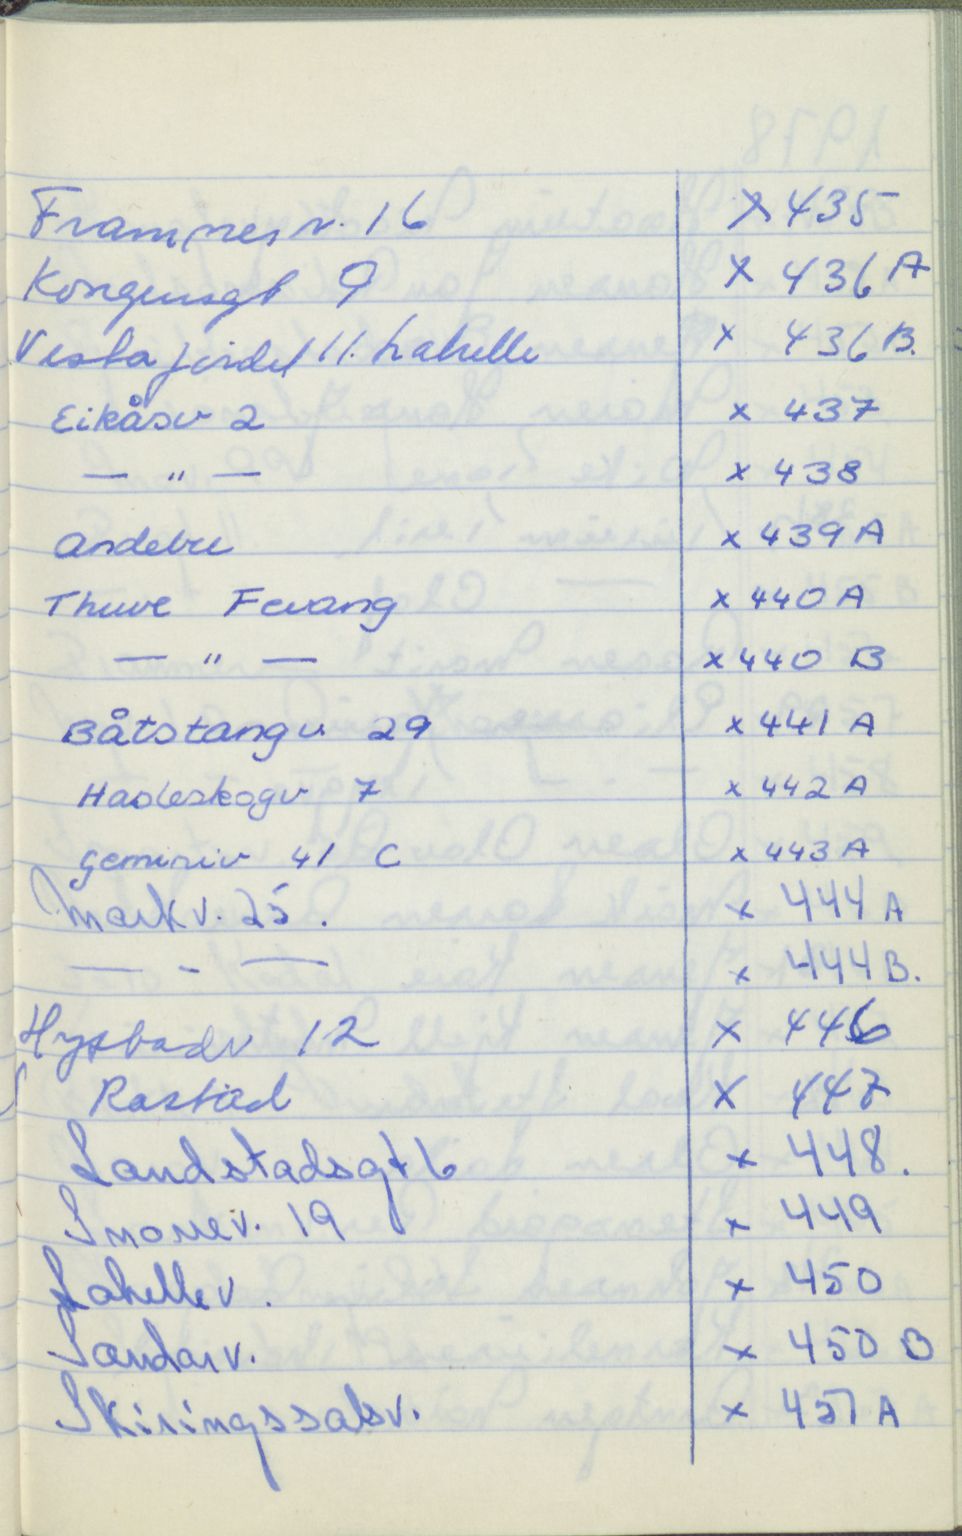 Framnesv. 16 x 435
Kongensgt 9 x 436 A
Vesta fjordel 11. Lahelle x 436 B.
Eikåsv 2 x 437
— " — x 438
Andebu x 439 A
Thuve Fevang x 440 A
— " — x 440 B
Båtstangv 29 x 441 A
Haoleskogv 7 x 442 A
geminiv 41 C x 443 A
Markv. 25. x 444 A
— - — x 444 B.
12 x 446
Rastad x 447
Landstadsgt 6 x 448.
Snorrev. 19 x 449
Lahellev. x 450
Sandarv. x 450 B
Skiringssalsv. x 451 A